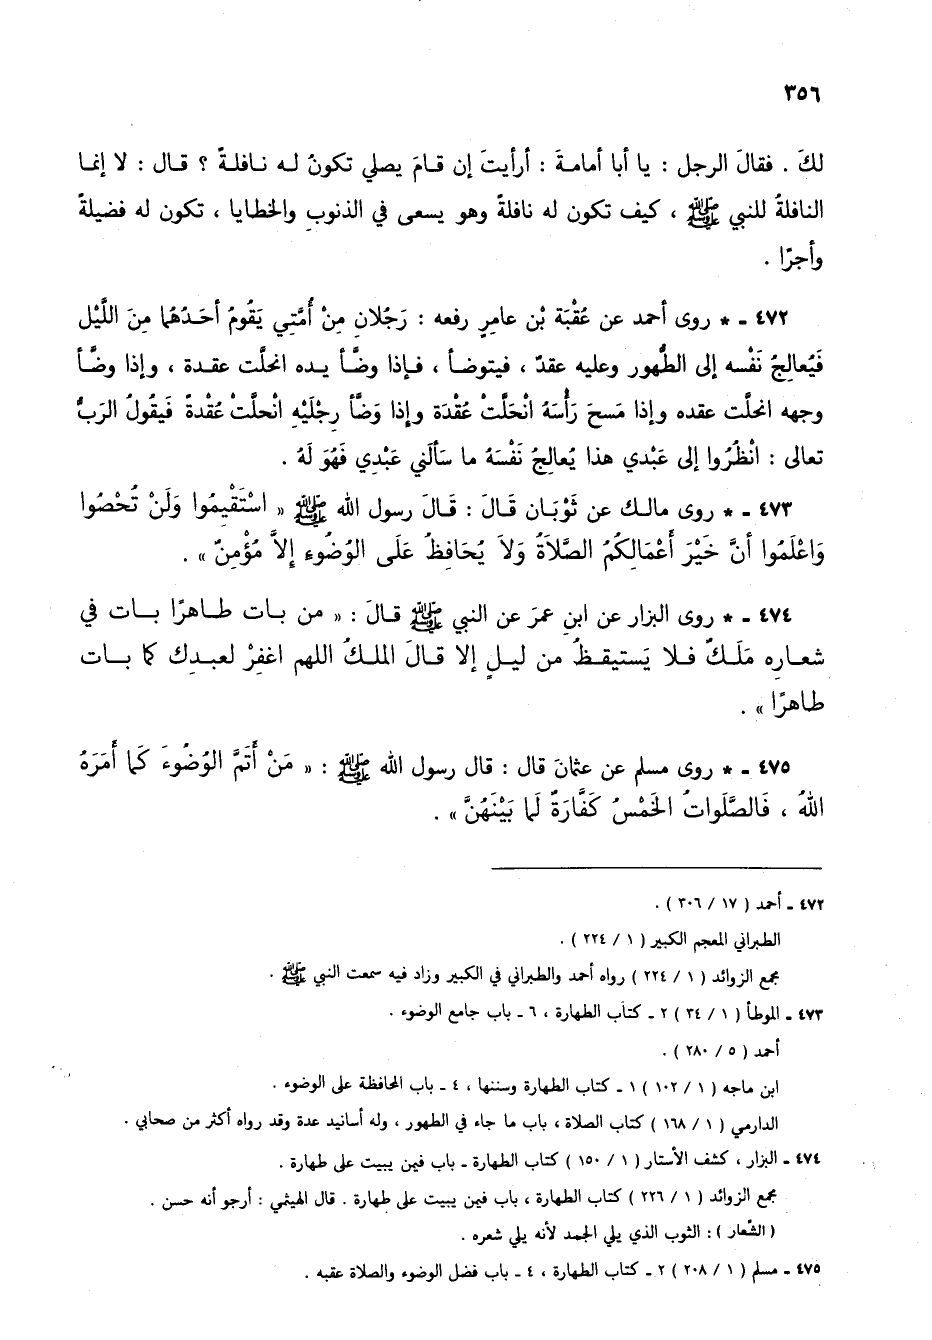 ٣٥٦
لكَ . فقالَ الرجل : يا أبا أمامـةَ : أرأيتَ إن قـامَ يصلي تكونُ لـه نـافلـةً ؟ قـال : لا إنمـا
النافلةُ للنبي ﷺ ، كيف تكون له نافلةً وهو يسعى في الذنوبِ والخطايا ، تكون له فضيلةً
وأجرًا .
٤٧٢ - * روى أحمد عن عُقْبَة بْن عامرٍ رفعه : رَجُلانِ مِنْ أُمَّتِي يَقُومُ أحَـدُهُمَا مِنَ اللَّيْلِ
فَيُعالِجُ نَفْسه إلى الطُّهور وعليه عقدٌ ، فيتوضأ ، فـإذا وضَّأ يـده انحلَّت عقـدة ، وإذا وضَّـأ
وجهه انحلَّت عقده وإذا مَسحَ رَأْسَهُ انْحَلَّتْ عُقْدَة وإذا وَضَّأ رِجْلَيْهِ انْحلَّتْ عُقْدةً فَيقُولُ الرَبُّ
تعالى : انْظُرُوا إلى عَبْدي هذا يُعالِجُ نَفْسَهُ ما سَألَني عَبْدِي فَهُوَ لَهُ .
٤٧٣ - * روى مالـك عن ثَوْبَـان قَـالَ : قَـالَ رسول الله ﷺ « اسْتَقْيِمُوا وَلَنْ تُحْصُوا
وَاعْلَمُوا أنَّ خَيْرَ أعْمَالِكُمُ الصَّلاَةُ وَلاَ يُحَافِظُ عَلَى الوُضُوءِ إلاَّ مُؤْمِنٌ » .
٤٧٤ - * روى البزار عن ابنِ عمرَ عن النبي ﷺ قـالَ : « من بـات طـاهرًا بـات في
شعـاره مَلَـكٌ فـلا يَستيقـظُ من ليـلٍ إلا قـالَ الملـكُ اللهم اغفِرْ لعبدِك كا بـات
طاهرًا » .
٤٧٥ - * روى مسلم عن عثمانَ قال : قال رسول الله ﷺ : « مَنْ أَتَمَّ الوُضُوءَ كَمَا أَمَرَهُ
اللهُ ، فَالصَّلَواتُ الخَمْسُ كَفَّارَةٌ لِمَا بَيْنَهُنَّ » .
٤٧٢ - أحمد ( ١٧ / ٣٠٦ ) .
الطبراني المعجم الكبير ( ١ / ٢٢٤ ) .
مجمع الزوائد ( ١ / ٢٢٤ ) رواه أحمد والطبراني في الكبير وزاد فيه سمعت النبي ﷺ .
٤٧٣ - الموطأ ( ١ / ٣٤ ) ٢ - كتاب الطهارة ، ٦ - باب جامع الوضوء .
أحمد ( ٥ / ٢٨٠ ) .
ابن ماجه ( ١ / ١٠٢ ) ١ - كتاب الطهارة وسننها ، ٤ - باب المحافظة على الوضوء .
الدارمي ( ١ / ١٦٨ ) كتاب الصلاة ، باب ما جاء في الطهور ، وله أسانيد عدة وقد رواه أكثر من صحابي .
٤٧٤ - البزار ، كشف الأستار ( ١ / ١٥٠ ) كتاب الطهارة - باب فيمن يبيت على طهارة .
مجمع الزوائد ( ١ / ٢٢٦ ) كتاب الطهارة ، باب فيمن يبيت على طهارة . قال الهيثمي : أرجو أنه حسن .
( الشّعار ) : الثوب الذي يلي الجسد لأنه يلي شعره .
٤٧٥ - مسلم ( ١ / ٢٠٨ ) ٢ - كتاب الطهارة ، ٤ - باب فضل الوضوء والصلاة عقبه .